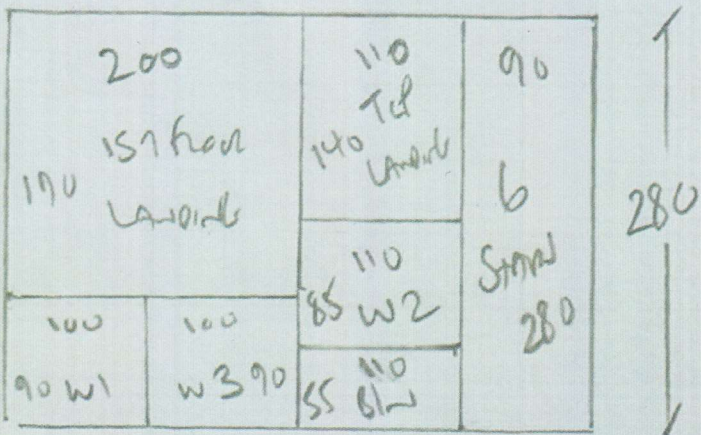 200
170
1ST Floor
LANDING
110
Top
140
LANDING
90
6
STAIRS
280
280
100
90 W1
100
W3 90
110
85 W2
110
55